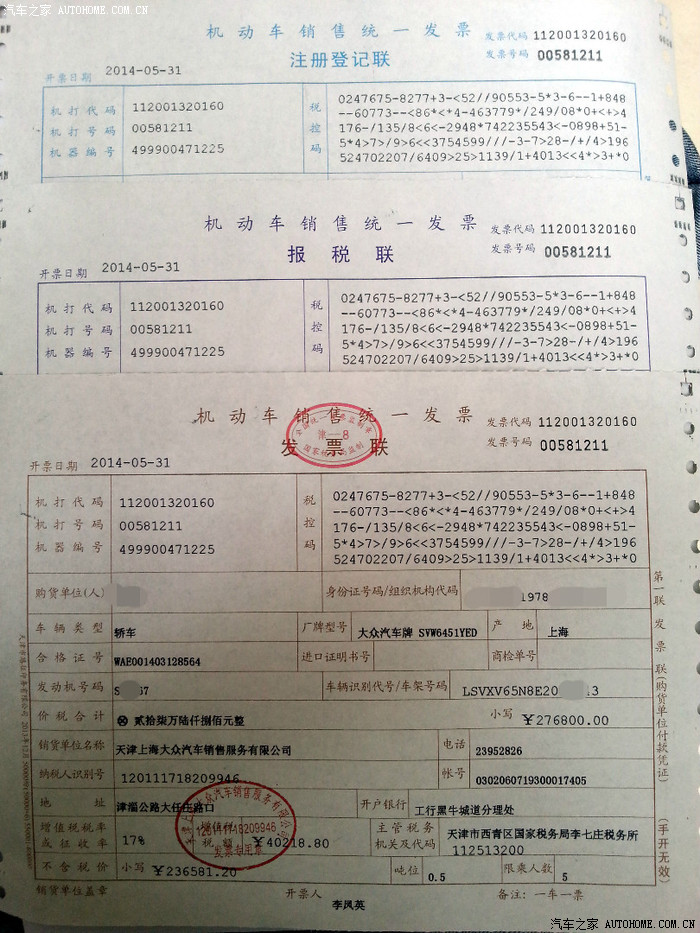 汽车之家 AUTOHOME.COM.CN
机动车销售统一发票
发票代码 112001320160
注册登记联
发票号码 00581211
开票日期 2014-05-31
机打代码 112001320160
机打号码 00581211
机器编号 499900471225
税控码
0247675-8277+3-<52//90553-5*3-6--1+848
--60773--<86*<*4-463779*/249/08*0+<+>4
176-/135/8<6<-2948*742235543<-0898+51-
5*4>7>/9>6<<3754599///-3-7>28-/+/4>196
524702207/6409>25>1139/1+4013<<4*>3+*0
机动车销售统一发票
发票代码 112001320160
报税联
发票号码 00581211
开票日期 2014-05-31
机打代码 112001320160
机打号码 00581211
机器编号 499900471225
税控码
0247675-8277+3-<52//90553-5*3-6--1+848
--60773--<86*<*4-463779*/249/08*0+<+>4
176-/135/8<6<-2948*742235543<-0898+51-
5*4>7>/9>6<<3754599///-3-7>28-/+/4>196
524702207/6409>25>1139/1+4013<<4*>3+*0
机动车销售统一发票
发票代码 112001320160
发票联
发票号码 00581211
开票日期 2014-05-31
机打代码 112001320160
机打号码 00581211
机器编号 499900471225
税控码
0247675-8277+3-<52//90553-5*3-6--1+848
--60773--<86*<*4-463779*/249/08*0+<+>4
176-/135/8<6<-2948*742235543<-0898+51-
5*4>7>/9>6<<3754599///-3-7>28-/+/4>196
524702207/6409>25>1139/1+4013<<4*>3+*0
购货单位(人) 身份证号码/组织机构代码 1978
车辆类型 轿车 厂牌型号 大众汽车牌 SVW6451YED 产地 上海
合格证号 WAE001403128564 进口证明书号 商检单号
发动机号码 车辆识别代号/车架号码 LSVXV65N8E20
价税合计 ⊗ 贰拾柒万陆仟捌佰元整 小写 ￥276800.00
销货单位名称 天津上海大众汽车销售服务有限公司 电话 23952826
纳税人识别号 120111718209946 帐号 0302060719300017405
地址 津淄公路大任庄路口 开户银行 工行黑牛城道分理处
增值税税率或征收率 17% 增值税税额 ￥40218.80 主管税务机关及代码 天津市西青区国家税务局李七庄税务所
112513200
不含税价 小写 ￥236581.20 吨位 0.5 限乘人数 5
销货单位盖章 开票人 李凤英 备注：一车一票
第一联 发票联(购货单位付款凭证)
(手开无效)
120111718209946
发票专用章
汽车之家 AUTOHOME.COM.CN